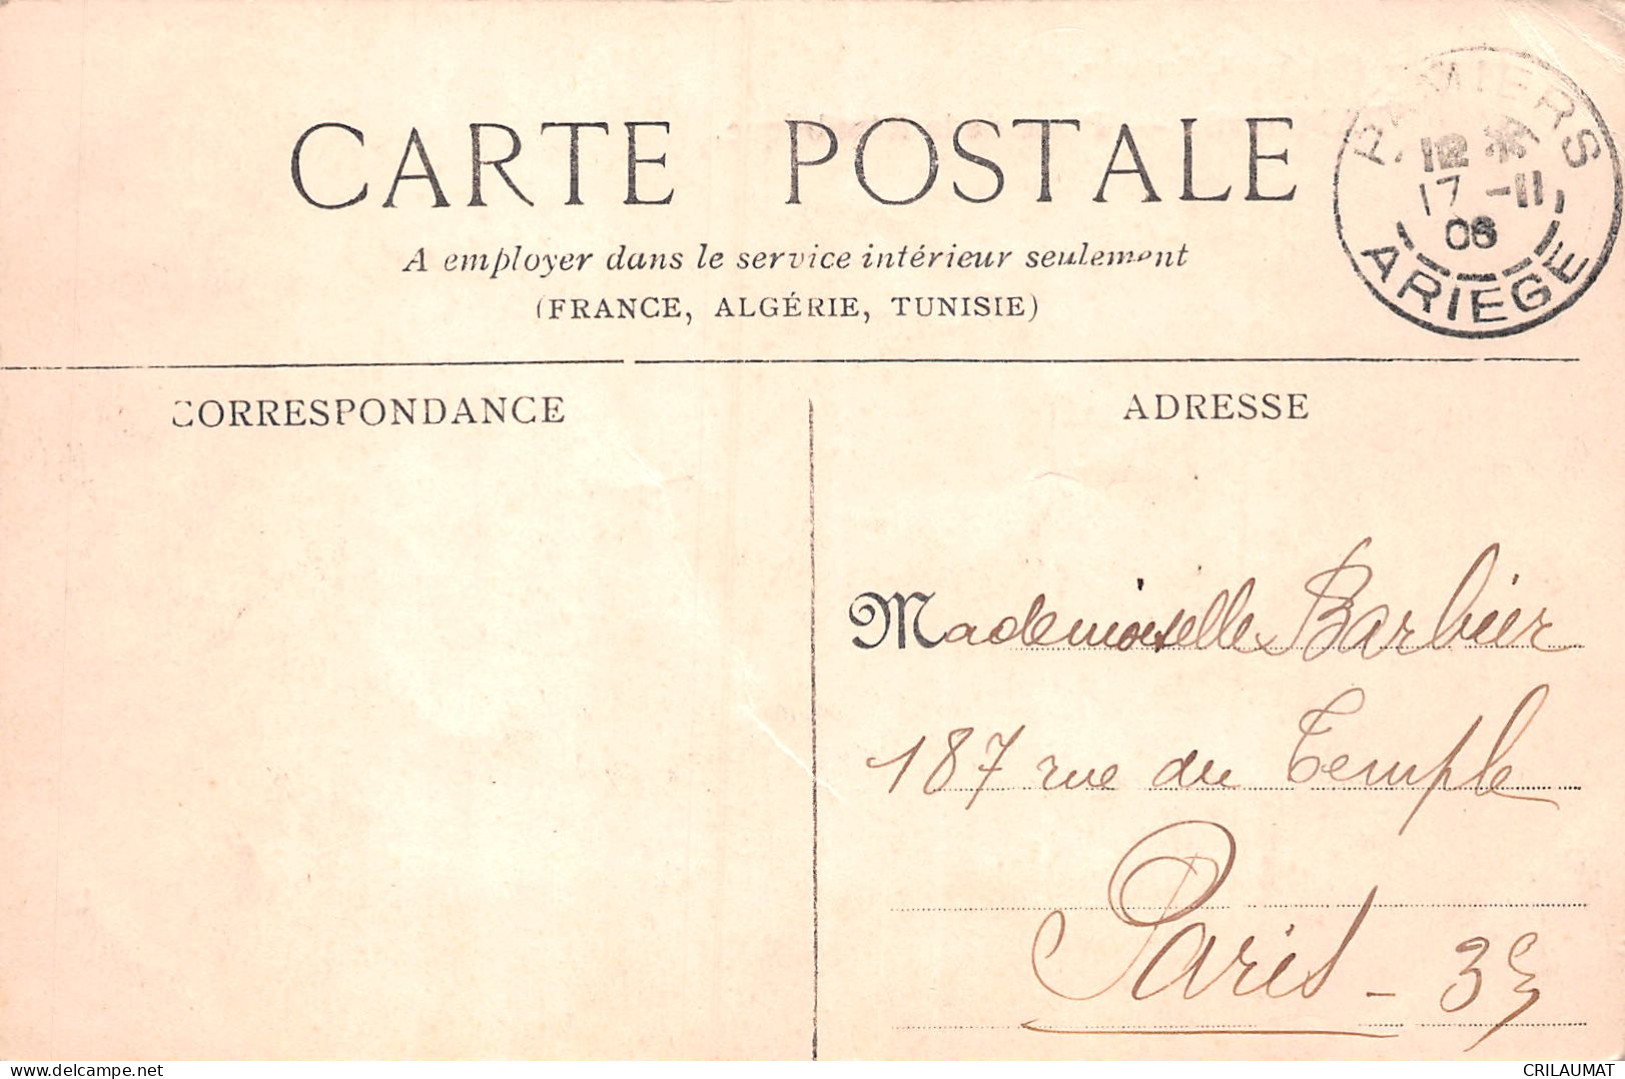 CARTE POSTALE
A employer dans le service intérieur seulement
(FRANCE, ALGÉRIE, TUNISIE)
PAMIERS
17 -11
06
ARIEGE
CORRESPONDANCE
ADRESSE
Mademoiselle Barbier
187 rue du Temple
Paris - 3e
www.delcampe.net
CRILAUMAT